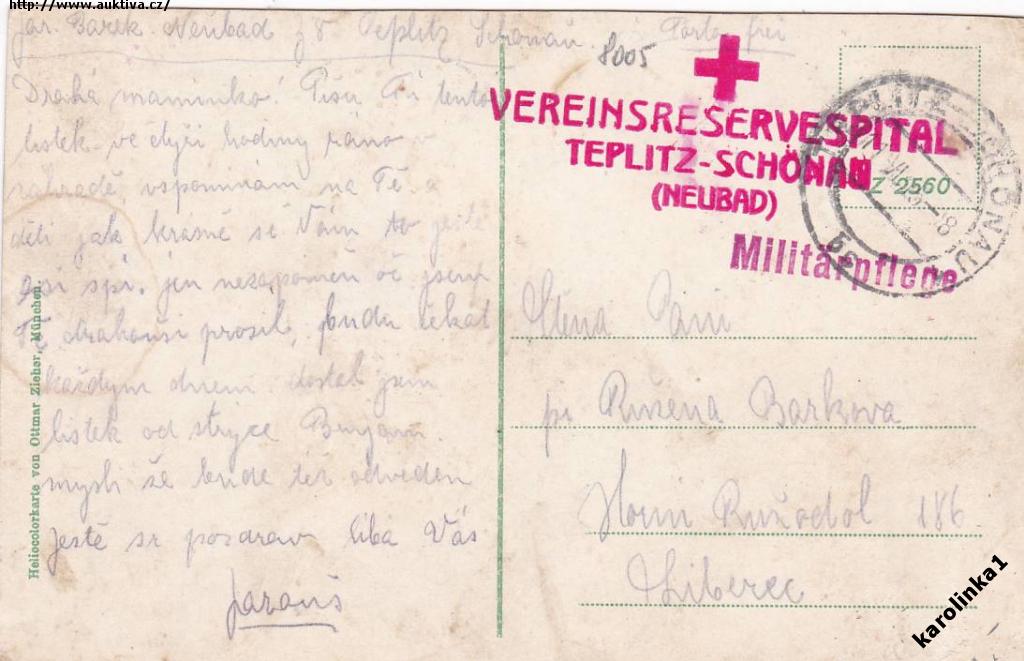 http://www.auktiva.cz/
Jar. Barek. Neubad z 8 Teplitz Schönau. Porto frei
8005
Drahá maminko! Píšu Ti tento
lístek ve čtyři hodiny ráno v
zahradě, vspomínám na Tě a
děti jak krásně se Vám to ještě
spí. jen nezapomeň oč jsem
Tě prosil, budu čekat
každym dnem dostal jsem
lístek od strýce
mysli že bude též odveden
Ještě sr pozdrav líbá Vás
Jarouš
VEREINSRESERVESPITAL
TEPLITZ-SCHÖNAU
(NEUBAD)
Militärpflege
TEPLITZ-SCHÖNAU
Z 2560
Ctěná Paní
pí Růžena Barkova
Horní Růžodol 186
Liberec
Heliocolorkarte von Ottmar Zieher, München.
karolinka1